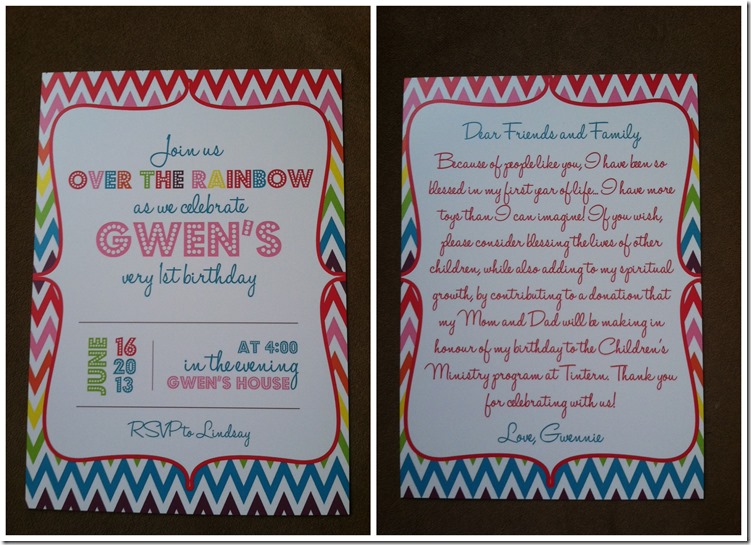 Join us
OVER THE RAINBOW
as we celebrate
GWEN'S
very 1st birthday
JUNE 16
20
13
AT 4:00
in the evening
GWEN'S HOUSE
RSVP to Lindsay
Dear Friends and Family
Because of people like you, I have been so
blessed in my first year of life... I have more
toys than I can imagine! If you wish,
please consider blessing the lives of other
children, while also adding to my spiritual
growth, by contributing to a donation that
my Mom and Dad will be making in
honour of my birthday to the Children's
Ministry program at Tintern. Thank you
for celebrating with us!
Love, Gwennie